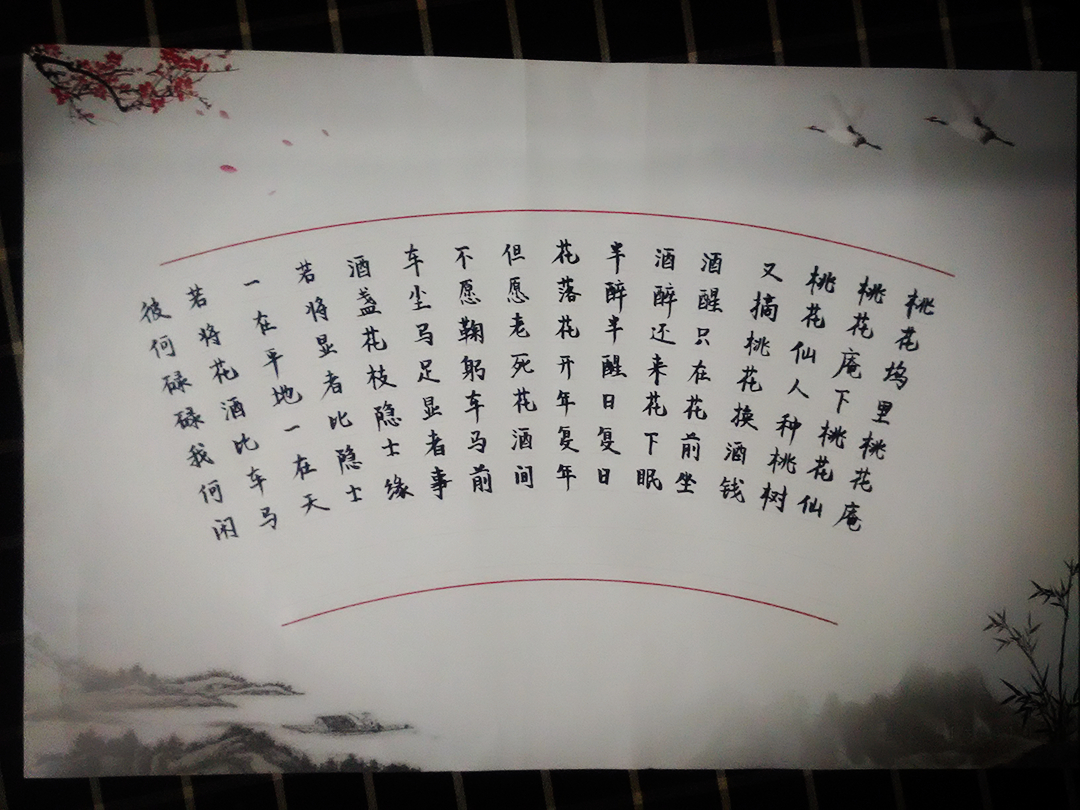 桃花坞里桃花庵
桃花庵下桃花仙
桃花仙人种桃树
又摘桃花换酒钱
酒醒只在花前坐
酒醉还来花下眠
半醉半醒日复日
花落花开年复年
但愿老死花酒间
不愿鞠躬车马前
车尘马足显者事
酒盏花枝隐士缘
若将显者比隐士
一在平地一在天
若将花酒比车马
彼何碌碌我何闲